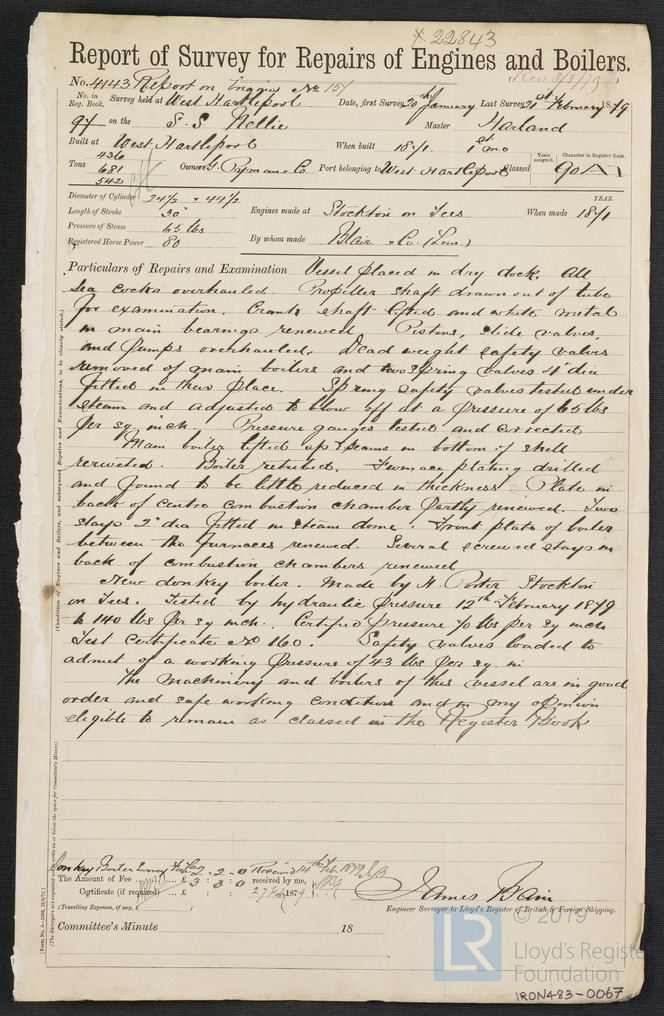 22843
Report of Survey for Repairs of Engines and Boilers.
No. 4143 Report on Engine No 151
No. in Reg. Book. Survey held at West Hartlepool Date, first Survey 20th January Last Survey 21st February 1879
94 on the S.S. Nellie Master Harland
Built at West Hartlepool When built 1871. 1st mo
Tons 436 681 542 Owners G. Pyman & Co Port belonging to West Hartlepool Classed Years assigned. 90 Character in Register Book. A1
Diameter of Cylinder 24 1/2 × 44 1/2
Length of Stroke 30"
Pressure of Steam 65 lbs
Registered Horse Power 80
Engines made at Stockton on Tees YEAR. When made 1871
By whom made Blair & Co. (Lim)
Particulars of Repairs and Examination Vessel placed in dry dock. All
sea cocks overhauled. Propeller shaft drawn out of tube
for examination. Crank shaft lifted and white metal
in main bearings renewed. Pistons, slide valves,
and pumps overhauled. Dead weight safety valves
removed of main boilers and two spring valves 4" dia
fitted in their place. Spring safety valves tested under
steam and adjusted to blow off at a pressure of 65 lbs
per sq. inch. Pressure gauges tested and corrected
Main boiler lifted up & seams in bottom of shell
reriveted. Boiler retubed. Furnace plating drilled
and found to be little reduced in thickness. Plate in
back of centre combustion chamber partly renewed. Two
stays 2" dia fitted in steam dome. Front plate of boiler
between the furnaces renewed. Several screwed stays in
back of combustion chambers renewed
New donkey boiler. Made by H. Porter Stockton
on Tees. Tested by hydraulic pressure 12th February 1879
to 140 lbs per sq inch. Certified pressure 70 lbs per sq inch
Test Certificate No 160. Safety valves loaded to
admit of a working pressure of 43 lbs per sq. in
The machinery and boilers of this vessel are in good
order and safe working condition and in my opinion
eligible to remain as classed in the Register Book
(Condition of Engines and Boilers, and subsequent Repairs and Examinations, to be clearly stated.)
Donkey Boiler Survey Fee £2.2.0 Received 14th Feb. 1879
The Amount of Fee £ 3 3 0 received by me,
Certificate (if required) £ 27/2/1879
(Travelling Expenses, if any, £
James Bain
Engineer Surveyor to Lloyd's Register of British & Foreign Shipping.
Committee's Minute 18
© 2019
LR
Lloyd's Register
Foundation
IRON483-0067